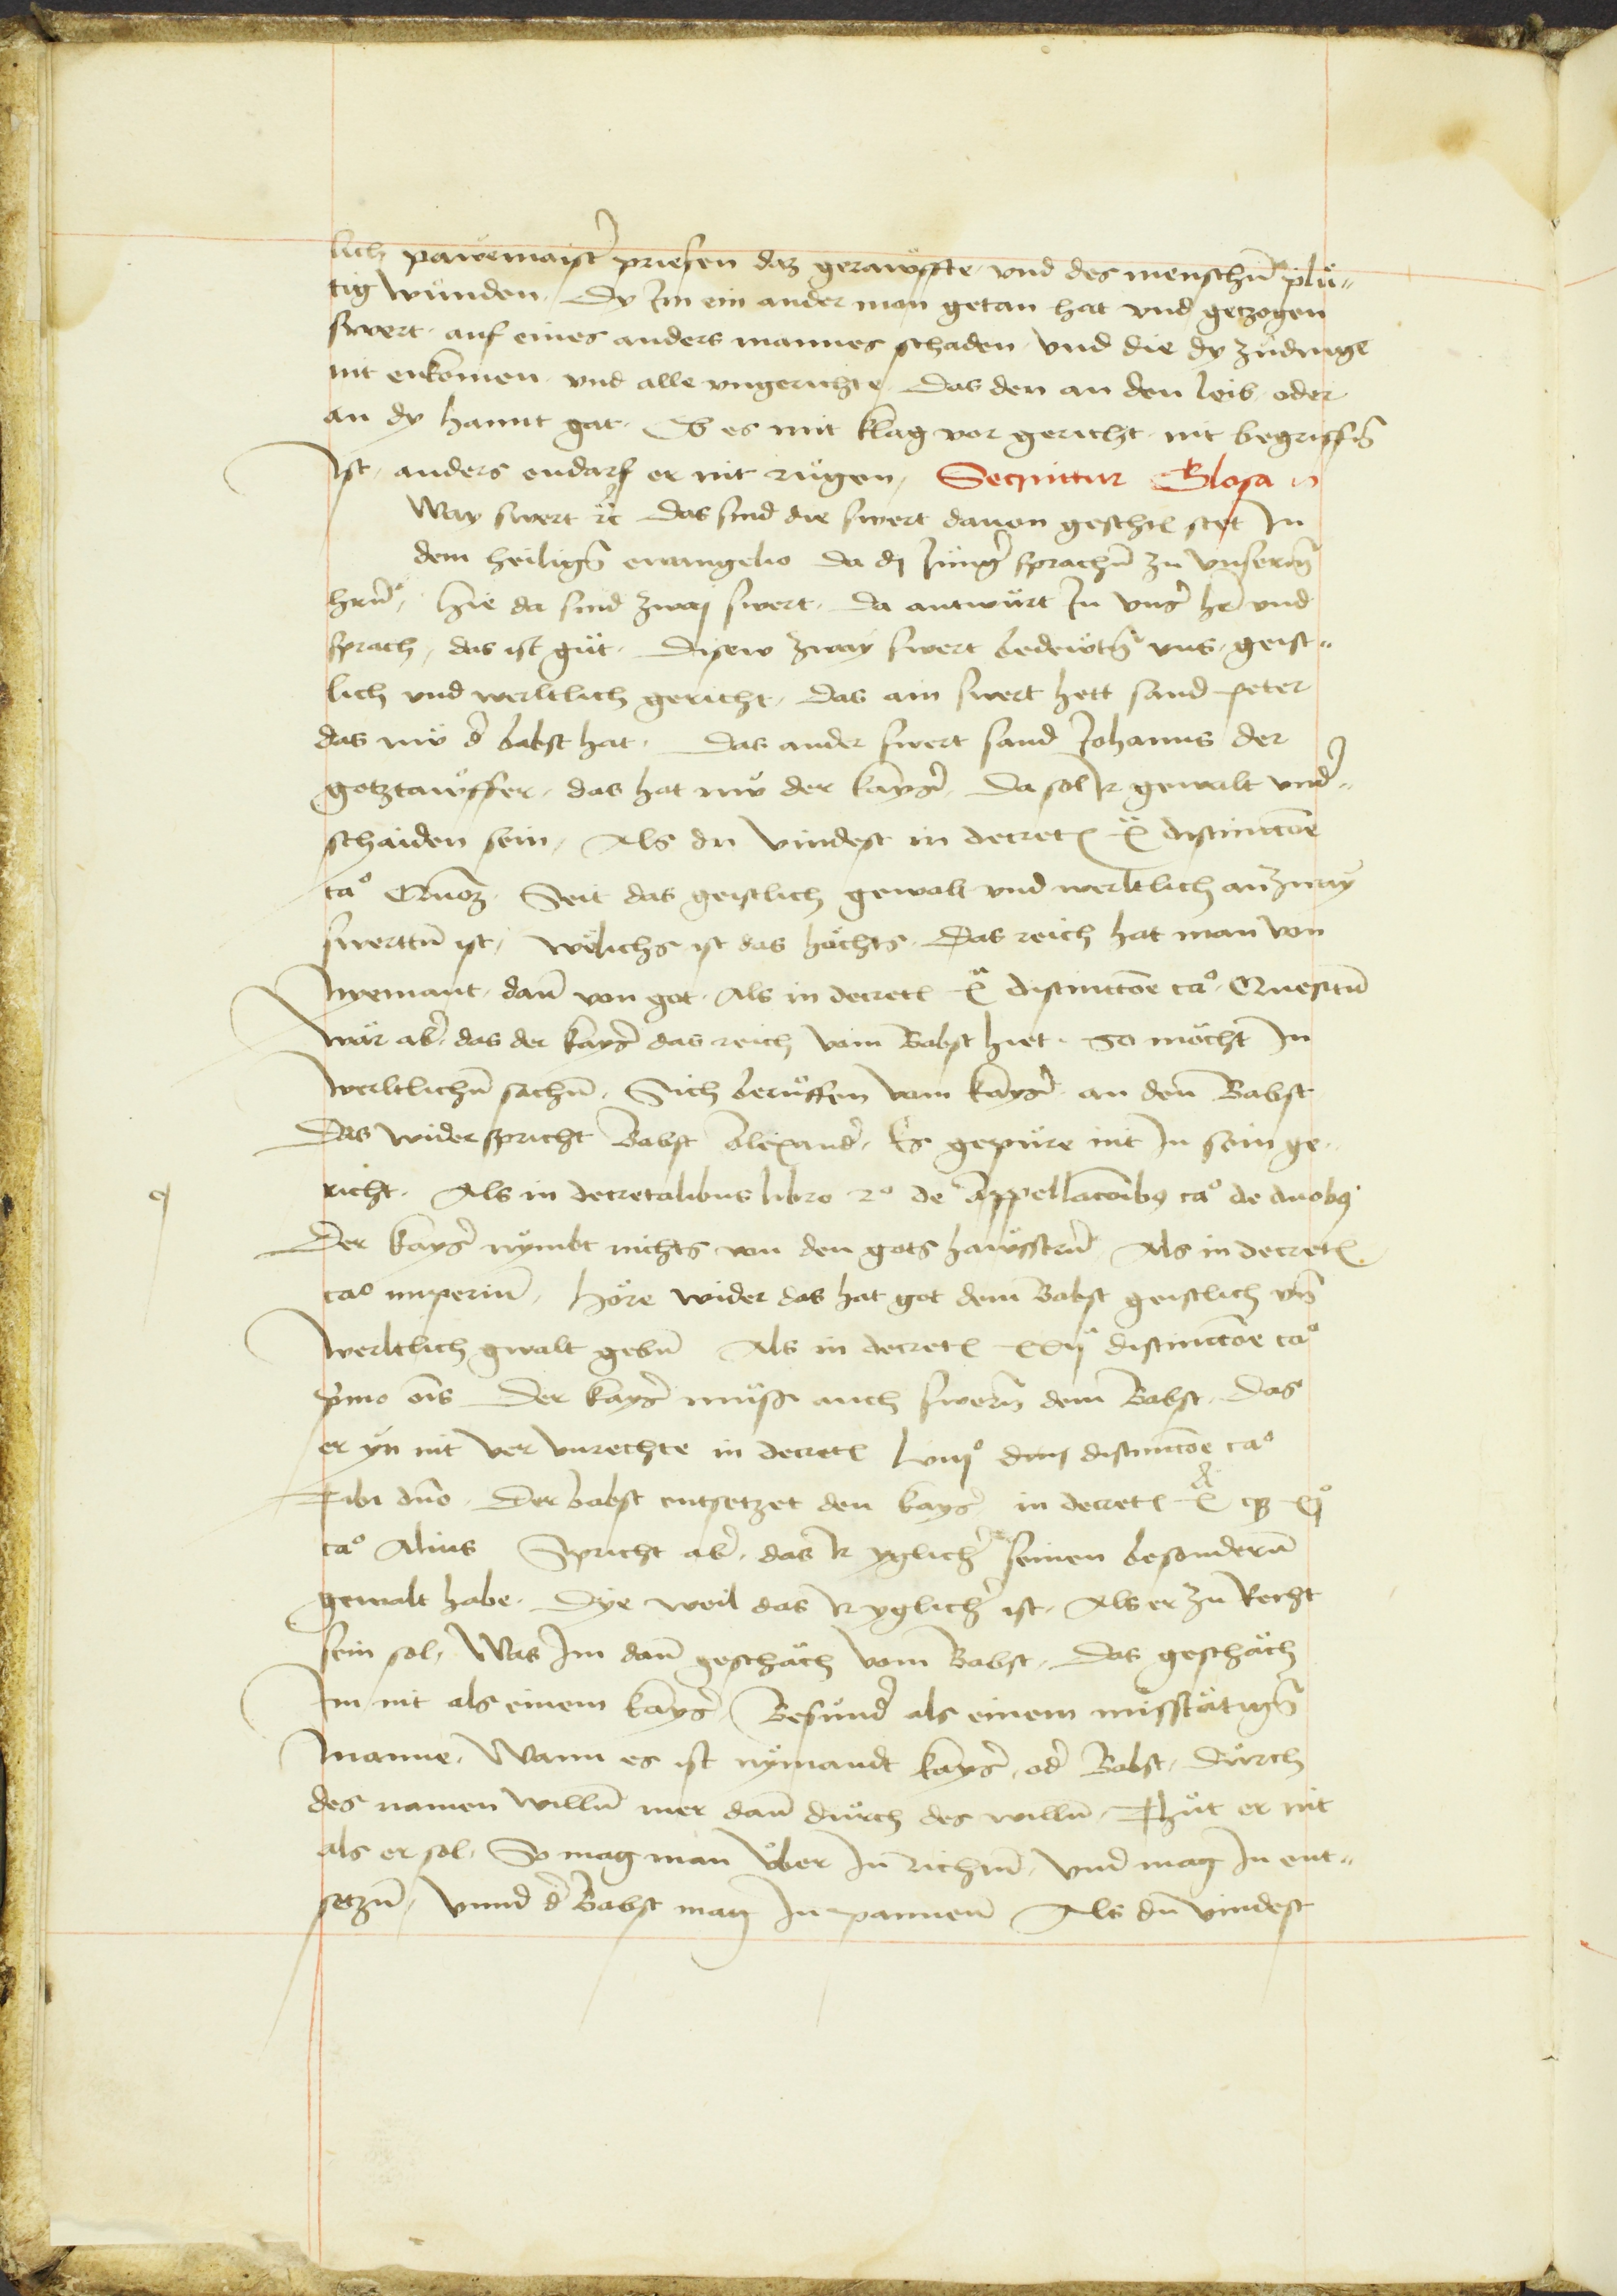 lich pawemaist' priesen daz gerawffte vnd des menschn̄ plu¨-
tig wunden. Dy Im ein ander man getan hat vnd getzogen
swert. auf eines anders mannes schaden. vnd die dy zudinge
nit enkomen. vnd alle vngerichte. Das den an den leib. oder
an dy hannt gat. Ob es mit klag vor gericht. nit begriffn̄
Ist. anders endarf er nit rügen. Sequittur Glosa
Way swert ꝛc̄ Das sind die swert dauon geschrꝭ stet In
dem heilign̄ ewangelio da dj Jung' sprachn̄ zu vnserm̄
hrn̄. Hie da sind zwaj swert. da antwürt In vns' h'r vnd
sprach, das ist güt. Disew zway swert bedewtn̄ vns. geist-
lich vnd werltlich gericht. Das ain swert hett sand peter
das nw d' babst hat. Das ander swert sand Johanns der
gotztawffer. das hat nw der kays'. Da sol ir gewalt vnd'-
schaiden sein. Als du vindest in decretꝭ x̄ distinctōe
ca° Qūoꝫ. Seit das geistlich gewalt vnd werltlich an zway
swerttn̄ ist. Wölichs ist das höchts. Das reich hat man von
Nyemant. dan̄ von got. Als in decretꝭ x̄ᵃ distinctōe ca°. Quesitū
Wär ab'. das der kays' das reich vom Babst hiet. So möcht In
Werltlichn̄ sachn̄. Sich beruffen vom kays'. an den Babst
Das widerspricht Babst Alexand'. Es gepüre nit In sein ge-
richt. Als in decretalibus libro 2° de appellacōibꝰ ca° de duobꝰ
Der kays' nymbt nichts von den gots hawsstrn̄ Als in decretꝭ
ca° imperiū. Höre wider das hat got dem Babst geistlich vn̄
Werltlich gwalt gebn̄ Als in decretꝭ xxijᵃ distinctōe ca°
p'mo oīs Der kays' muss auch swern̄ dem Babst. Das
er yn nit ver vnrechte in decretꝭ lxiij° distinctōe ca°
Tibi dūo. Der babst entsetzet den kays' in decretꝭ
ca° Alius Spricht ab'. das ir yglich' seinen besonderm̄
gewalt habe. Dye weil das ir yglich' ist. Als er zu Recht
sein sol. Was Im dan̄ geschäch vom Babst. Das geschäch
Im nit als einem kays'. Besund' als einem misstätign̄
Manne. Wann es ist nymandt kays'. od' Babst. Durch
des namen willn̄ mer dan̄ durch des willn̄. Thüt er nit
als er sol. So mag man vber In richtn̄. vnd mag In ent-
setzn̄. vnnd d' Babst mag In pannen̄ Als du vindest